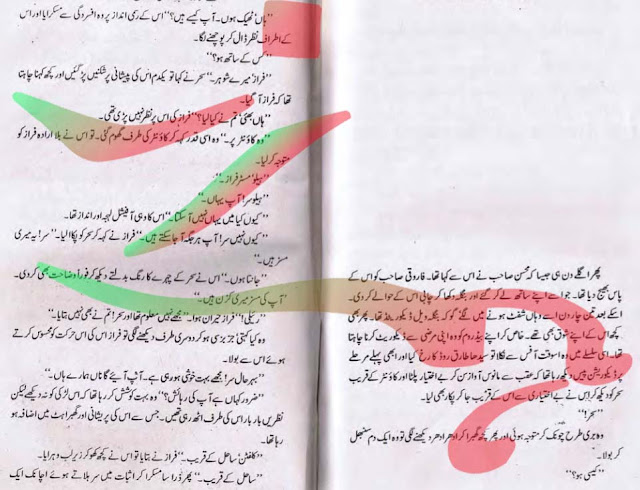 پھر اگلے دن ہی جیسا کہ محسن صاحب نے اس سے کہا تھا۔ فاروقی صاحب کو اس کے
پاس بھیج دیا تھا۔ جو اسے اپنے ساتھ لے کر گئے اور بنگلہ دکھا کر چابی اس کے حوالے کر دی۔
اسکے بعد تین چار دن اسے وہاں شفٹ ہونے میں لگے گو کہ بنگلہ ویل ڈیکوریٹڈ تھا۔ پھر بھی
کچھ اس کے اپنے شوق بھی تھے۔ خاص کر اپنے بیڈ روم کو وہ اپنی مرضی سے ڈیکوریٹ کرنا چاہتا
تھا۔ اسی سلسلے میں وہ اسوقت آفس سے نکلا تو سیدھا طارق روڈ کا رخ کیا اور ابھی پہلے مرحلے
پر ڈیکوریشن پیس دیکھ رہا تھا کہ عقب سے مانوس آواز سن کر بے اختیار پلٹا اور کاؤنٹر کے قریب
سحر کو دیکھ کر اس نے بے اختیاری سے اس کے قریب جا کر پکار بھی لیا۔
”سحر!“
وہ بری طرح چونک کر متوجہ ہوئی اور پھر کچھ گھبرا کر ادھر ادھر دیکھنے لگی تو وہ ایک دم سنبھل
کر بولا۔
”کیسی ہو؟“
”ہاں ٹھیک ہوں۔ آپ کیسے ہیں؟“ اس کے رسمی انداز پر وہ افسردگی سے مسکرایا اور اس
کے اطراف نظر ڈال کر پوچھنے لگا۔
”کس کے ساتھ ہو؟“
”فراز میرے شوہر۔“ سحر نے کہا تو یکدم اس کی پیشانی پر شکنیں پڑ گئیں اور کچھ کہنا چاہتا
تھا کہ فراز آ گیا۔
”ہاں بھئی تم نے کیا لیا؟“ فراز کی اس پر نظر نہیں پڑی تھی۔
”وہ کاؤنٹر پر۔“ وہ اسی قدر کہہ کر کاؤنٹر کی طرف گھوم گئی۔ تو اس نے بلا ارادہ فراز کو
متوجہ کر لیا۔
”ہیلو مسٹر فراز۔“
”ہیلو سر! آپ یہاں۔“
”کیوں کیا میں یہاں نہیں آ سکتا۔“ اس کا وہی آفیشل لہجہ اور انداز تھا۔
”کیوں نہیں سر! آپ ہر جگہ آ جا سکتے ہیں۔“ فراز نے کہہ کر سحر کو پکارا لیا۔ ”سر! یہ میری
مسز ہیں۔“
”جانتا ہوں۔“ اس نے سحر کے چہرے کا رنگ بدلتے دیکھ کر فوراً وضاحت بھی کر دی۔
”آپ کی مسز میری کزن ہیں۔“
”ریئلی!“ فراز حیران ہوا۔ ”مجھے نہیں معلوم تھا اور سحر! تم نے بھی نہیں بتایا۔“
وہ کیا کہتا جز بز ہو کر دوسری طرف دیکھنے لگی تو فراز اس کی اس حرکت کو محسوس کرتے
ہوئے اس سے بولا۔
”بہر حال سر! مجھے بہت خوشی ہو رہی ہے۔ آپ آئیے گا ناں ہمارے ہاں۔“
”ضرور کہاں ہے آپ کی رہائش؟“ وہ بہت کوشش کر رہا تھا کہ اس لڑکی کو نہ دیکھے لیکن
نظریں بار بار اس کی طرف اٹھ رہی تھیں۔ جس سے اس کی پریشانی اور گھبراہٹ میں اضافہ ہو
رہا تھا۔
”کلفٹن! ساحل کے قریب۔“ فراز نے بتایا تو اس نے کچھ کھو کر زیر لب دہرایا۔
”ساحل کے قریب۔“ پھر ذرا سا مسکرا کر اثبات میں سر ہلاتے ہوئے اچانک ایک